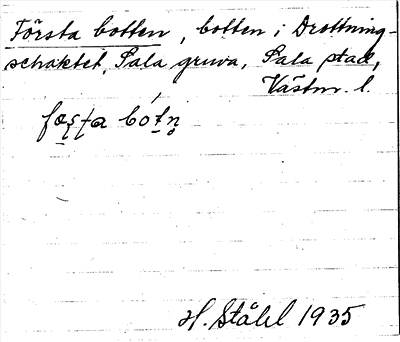 Första botten, botten i Drottning-
schaktet, Sala gruva, Sala stad,
Västm. l.
H. Ståhl 1935